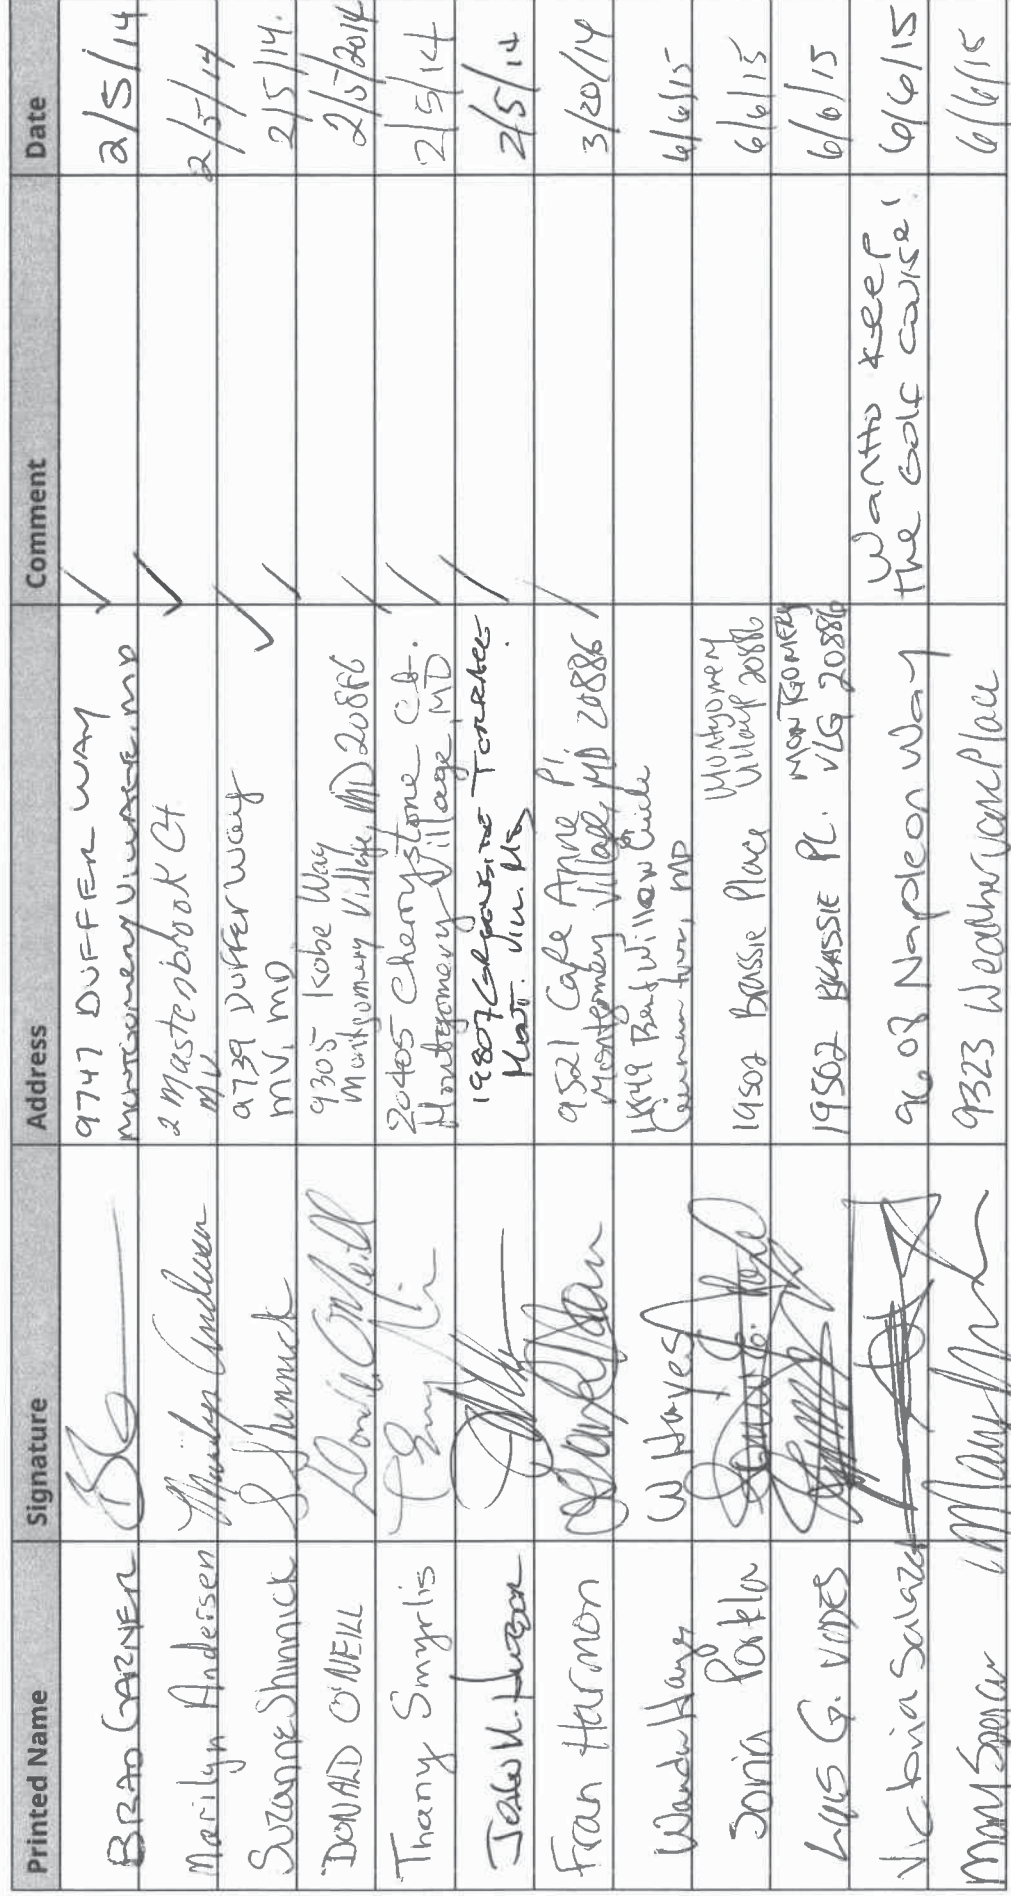 Printed Name Signature Address Comment Date
BRAD GARNER 9747 DUFFER WAY 2/5/14
MONTGOMERY VILLAGE, MD
Marilyn Andersen Marilyn Andersen 2 Mastenbrook Ct 2/5/14
MV
Suzanne Shinnick S Shinnick 9739 Duffer Way 2/5/14.
MV, MD
DONALD O'NEILL Donald O'Neill 9305 Kobe Way 2/5/2014
Montgomery Village, MD 20886
Thany Smyrlis 20405 Cherrystone Ct. 2/5/14
Montgomery Village, MD
19807 Terrace 2/5/14
Mont. Vill. Md
Fran Harmon 9521 Cape Anne Pl 3/20/14
Montgomery Village, MD 20886
Wanda Hayes W Hayes Bent Willow Circle 6/6/15
MD
Sonia 19502 Brassie Place Montgomery Village 20886 6/6/15
LUIS G. 19502 BRASSIE PL. MONTGOMERY VLG 20886 6/6/15
Victoria Salazar 9603 Napleon Way Want to keep 6/6/15
the Golf course!
Mary 9323 Weathervane Place 6/6/15